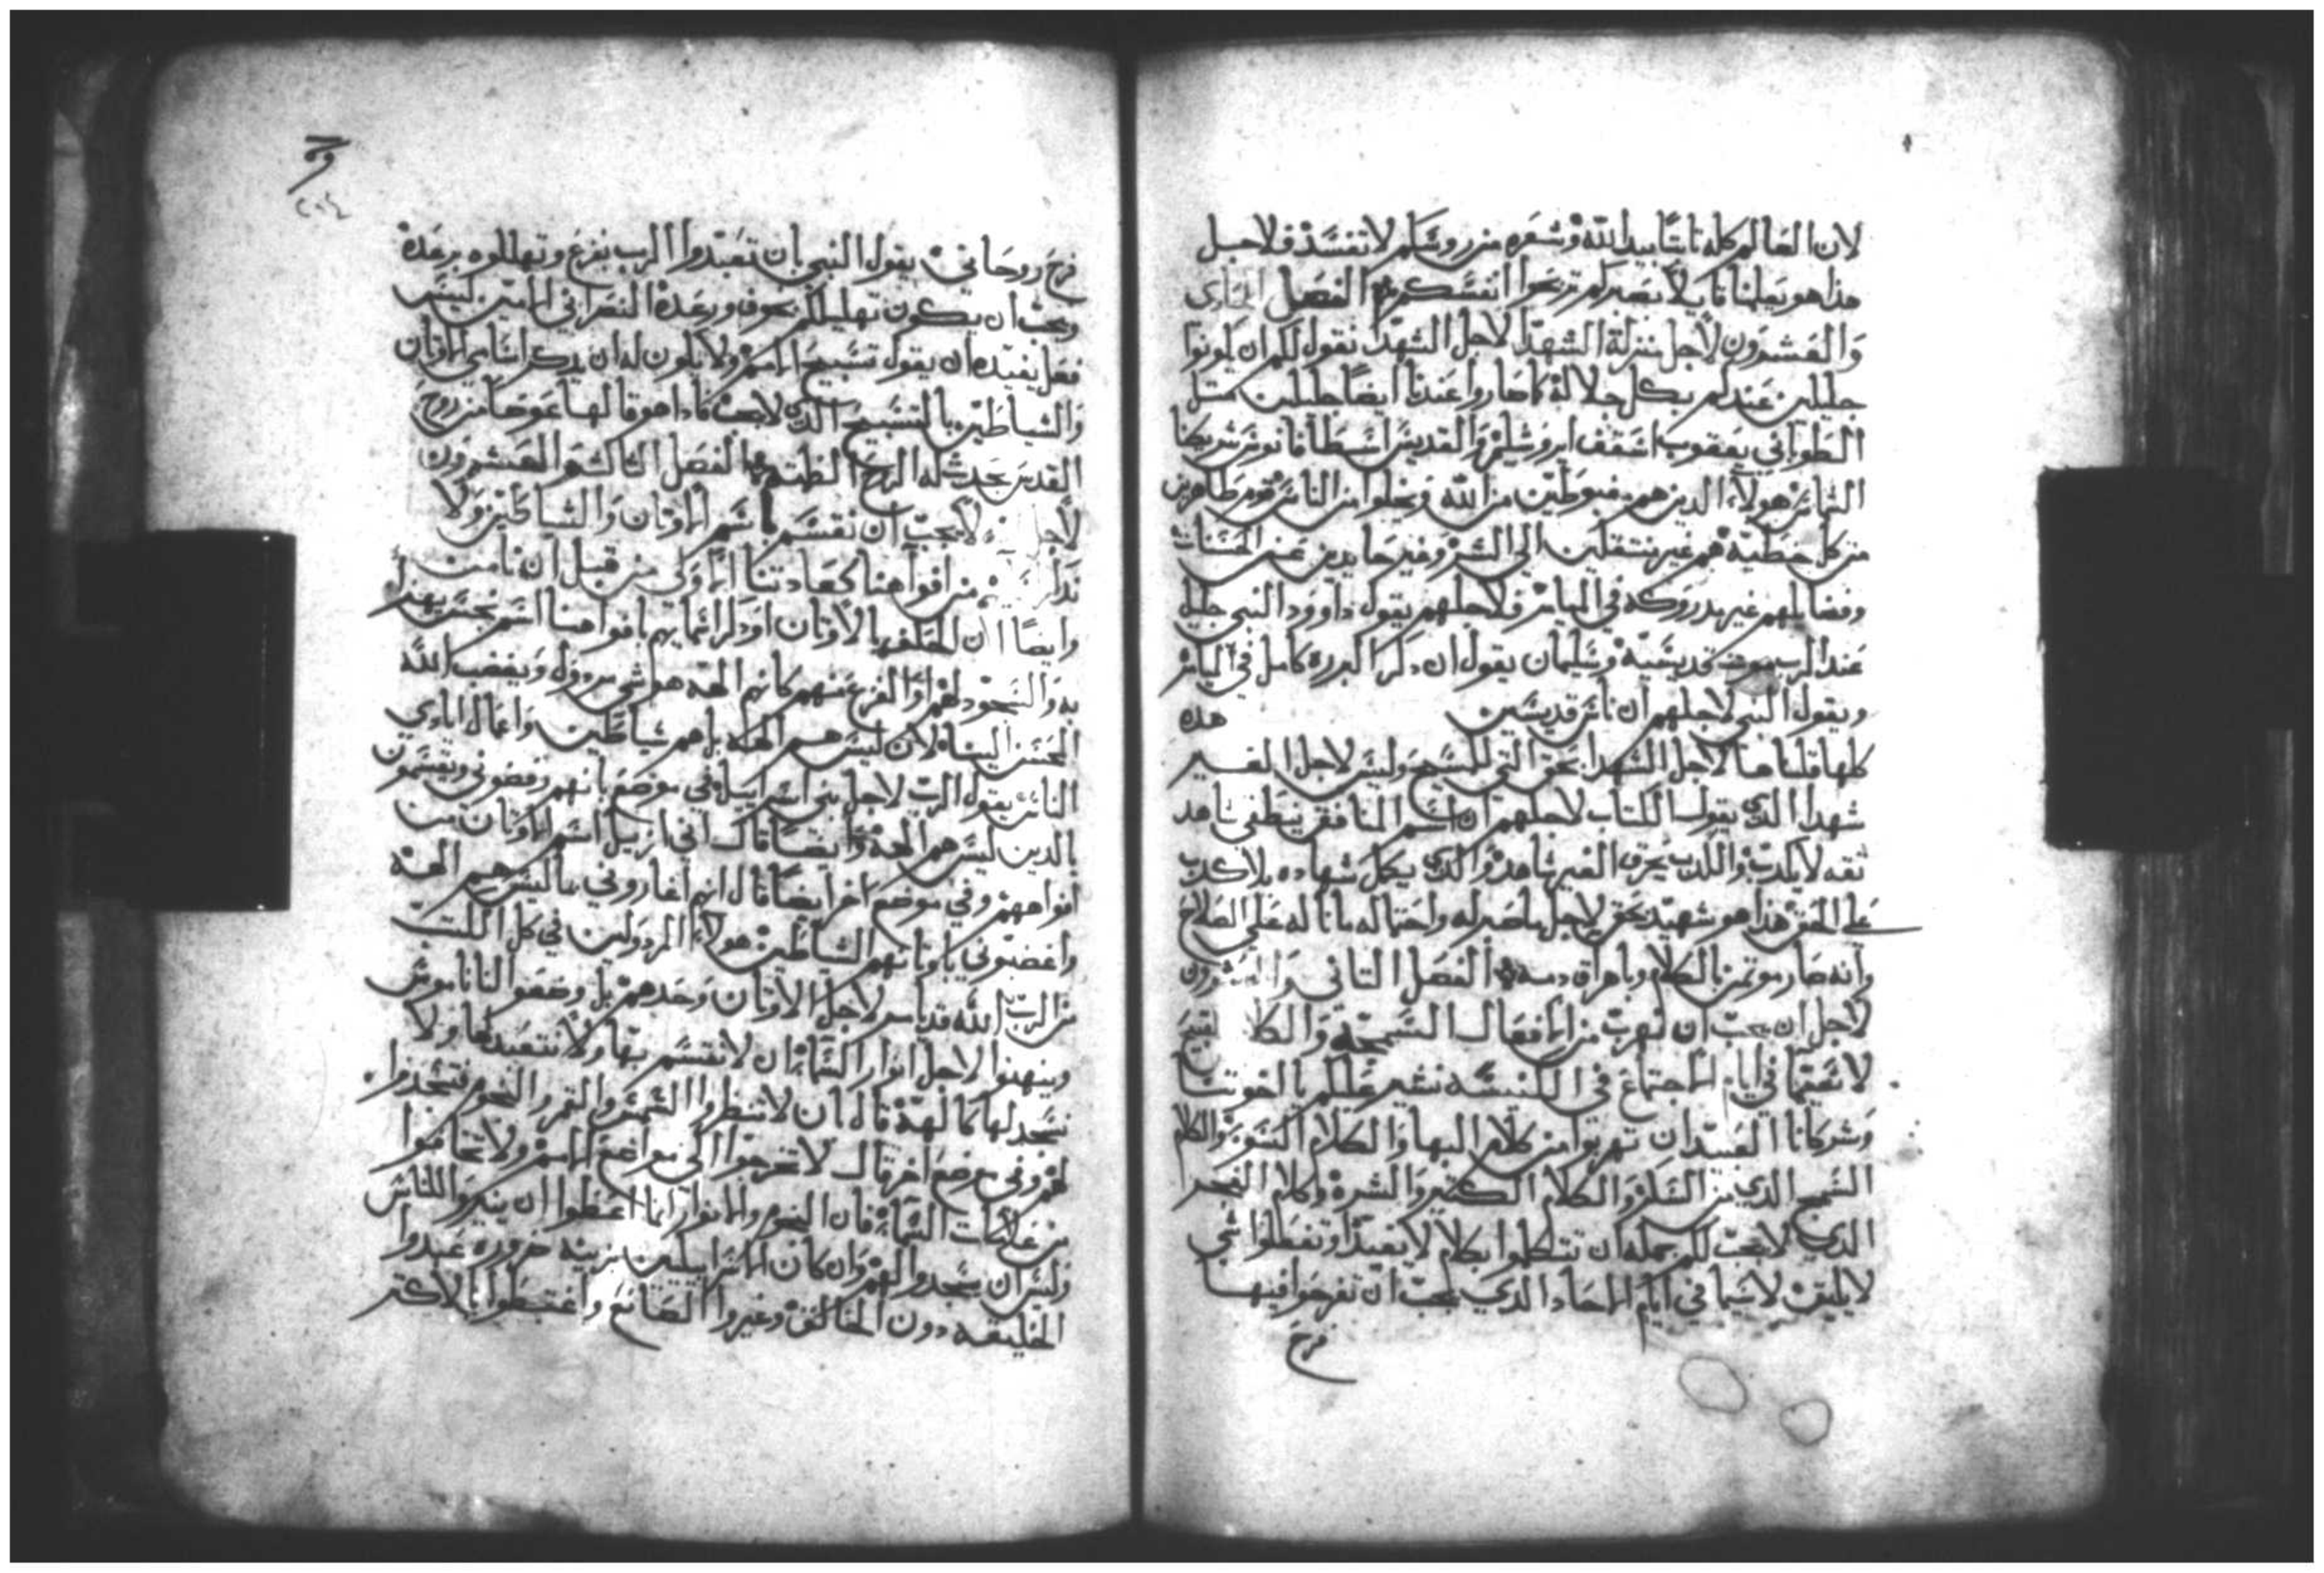 لان العالم كله ثابتًا بيد الله وشعره من روسكم لا تفسد فلاجل
هذا هو يعلمنا قايلا بصبركم تربحوا انفسكم الفصل الحادى
والعشرون لاجل منزلة الشهدا لاجل الشهدا نقول لكم ان يكونوا
جليلين عندكم بكل جلالة كما صاروا عندنا ايضًا جليلين متل
الطوباني يعقوب اسقف ايروشليم والقديس اسطافانوس شريكنا
الشماس هولاء الذين هم مغبوطين من الله
من كل خطية هم غير منتقلين الي الشر وغير حايدين عن الحسنات
وفضايلهم غير مدروكه في الياس فلاجلهم يقول داوود النبي جليل
عند الرب موت قديسيه وسليمان يقول ان دكر البرره كامل في
ويقول النبي لاجلهم ان ناس قديسين هده
كلها قلناها لاجل الشهدا بحق التي للمسيح وليس لاجل الغير
شهدا الذي يقول الكتاب لاجلهم ان اسم المنافقين ينطفي شاهد
تقه لا يكدب والكدب يحرق الغير شاهد والذي يكمل شهاده بلا كدب
علي الحق هذا هو شهيد بحق لاجل ما صبر له واحتماله ما ناله علي الصلاح
وانه صار موتمن بالكلام وباهراق دمه الفصل التاني والعشرون
لاجل ان يجب ان نهرب من الافعال السمجة والكلا لقبيح
لا سيما في ايام الاجتماع في الكنيسه نشير عليكم يا اخوتنا
وشركانا العبيد ان تهربوا من كلام البها والكلام والكلام
السمج الذي من السكر والكلام الكتير والشره وكلام الفجرا
الذي لا يجب لكم بجمله ان تتكلموا بكلام لا يفيد او تفعلوا شي
لا يليق لا سيما في ايام الاحاد الذي يجب ان تفرحوا فيها
فرح
فرح روحاني يقول النبي بان تعبدوا الرب بفزع وتهللوه برعده
ويجب ان يكون تهليلكم بخوف ورعدة النصراني الامين ليس
فعل يفيده ان يقول تسبيح الامم ولا يكون له ان يدكر اسامي الاوتان
والشياطين بالتسبيح الذي لا يجب فادا هو قالها عوضا من روح
القدس يحدث له الروح الظلمه الفصل التالت والعشرون
لاجل لا يجب ان نقسم باسم الاوتان والشياطين ولا
من افواهنا كعادتنا الاولى من قبل ان نامن
وايضًا ان الحلف بالاوتان او ذكر اسمايهم بافواهنا اسم نجس
به والسجود لهم او الفزع منهم كانهم الهه هو شي مردول ويغضب الله
المحسن الينا لان ليس هم الهه بل هم شياطين واعمال ايادي
الناس يقول الرب لاجل بني اسراييل في موضع بانهم رفضوني ويقسمون
بالدين ليس هم الهة وايضًا قال اني ازيل اسم الاوتان من
افواههم وفي موضع اخر ايضًا قال انهم اغاروني بما ليس هم الهة
واغضبوني باوتانهم الشياطين هولاء المردولين في كل الكتب
من الرب الله قد يامر لاجل الاوتان وحدهم بل وضعوا لنا ناموس
وينهونا لاجل انوار السماء ان لا نقسم بها ولا نتعبد لها ولا
نسجد لها كالهة قال ان لا تنظروا الشمس والقمر والنجوم فتسجدوا
لهم وفي موضع اخر قال لا تخرجوا الي مواضع الامم ولا تخافوا
من علامات السماء فان النجوم والانوار انما اعطوا ان ينيروا للناس
وليس ان يسجدوا لهم وان كان الاسراييليين من ضروره عبدوا
الخليقه دون الخالق وغيروا الصانع واغتبطوا بالاكتر